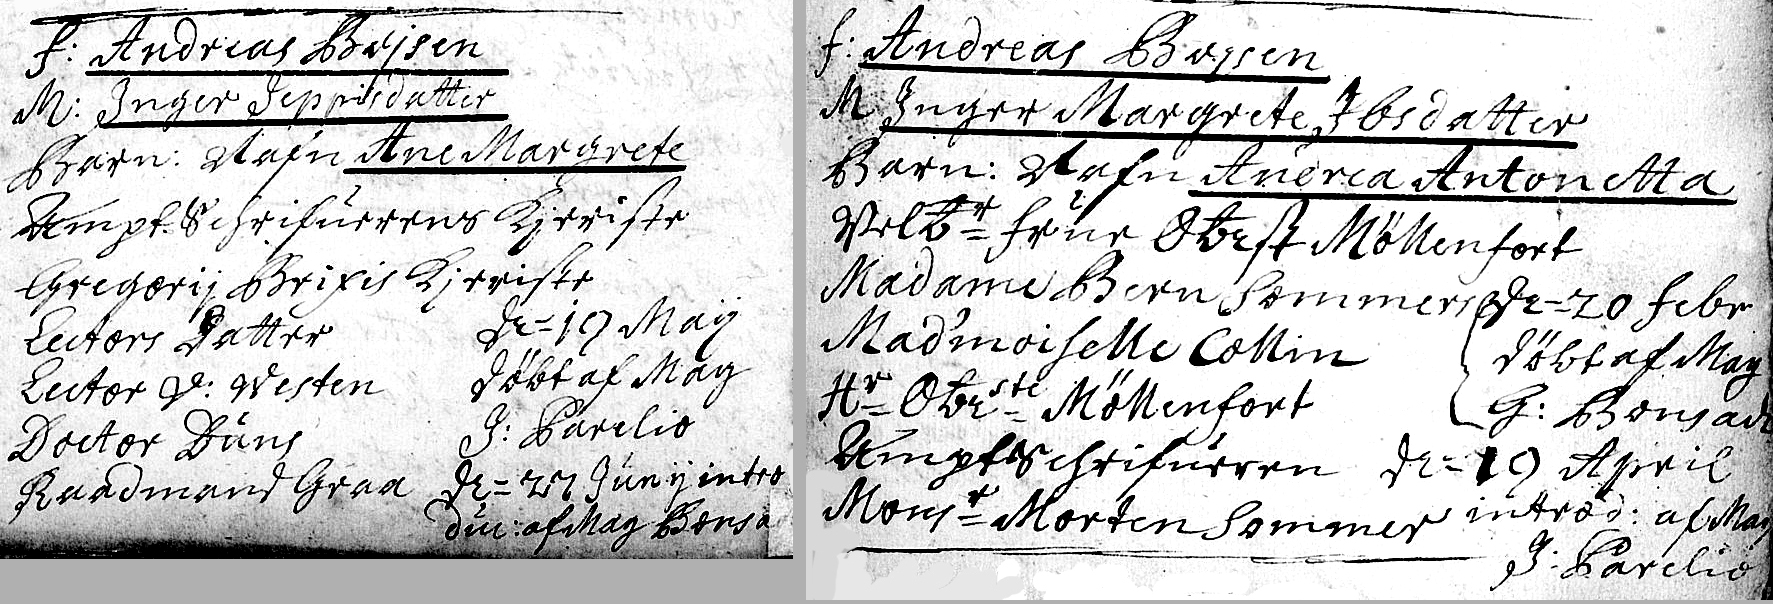 F: Andreas Bojsen
M: Inger Jeppisdatter
Barn: Nafn Ane Margrete
Ampt Schrifuerens Kjeriste
Gregorij Brixis Kjeriste
Lectors Datter
Lector v: Westen
Doctor Buns
Raadmand Graa
De= 19 Maij
döbt af Mag
J: Parelio
De= 27 Junij intro
duc: af Mag Bonsa
f: Andreas Bojsen
M Inger Margrete Ibsdatter
Barn: Nafn Andrea Antonetta
Velbr= frue Obrest Möllenfort
Madame Bern Sommers
Mad'moiselle Collin
Hr= Obrste= Möllenfort
Ampt Schrifueren
Monsr= Morten Sommer
De= 20 Febr
döbt af Mag
G: Bonsach
De= 19 April
introd: af Mag
J: Parelio